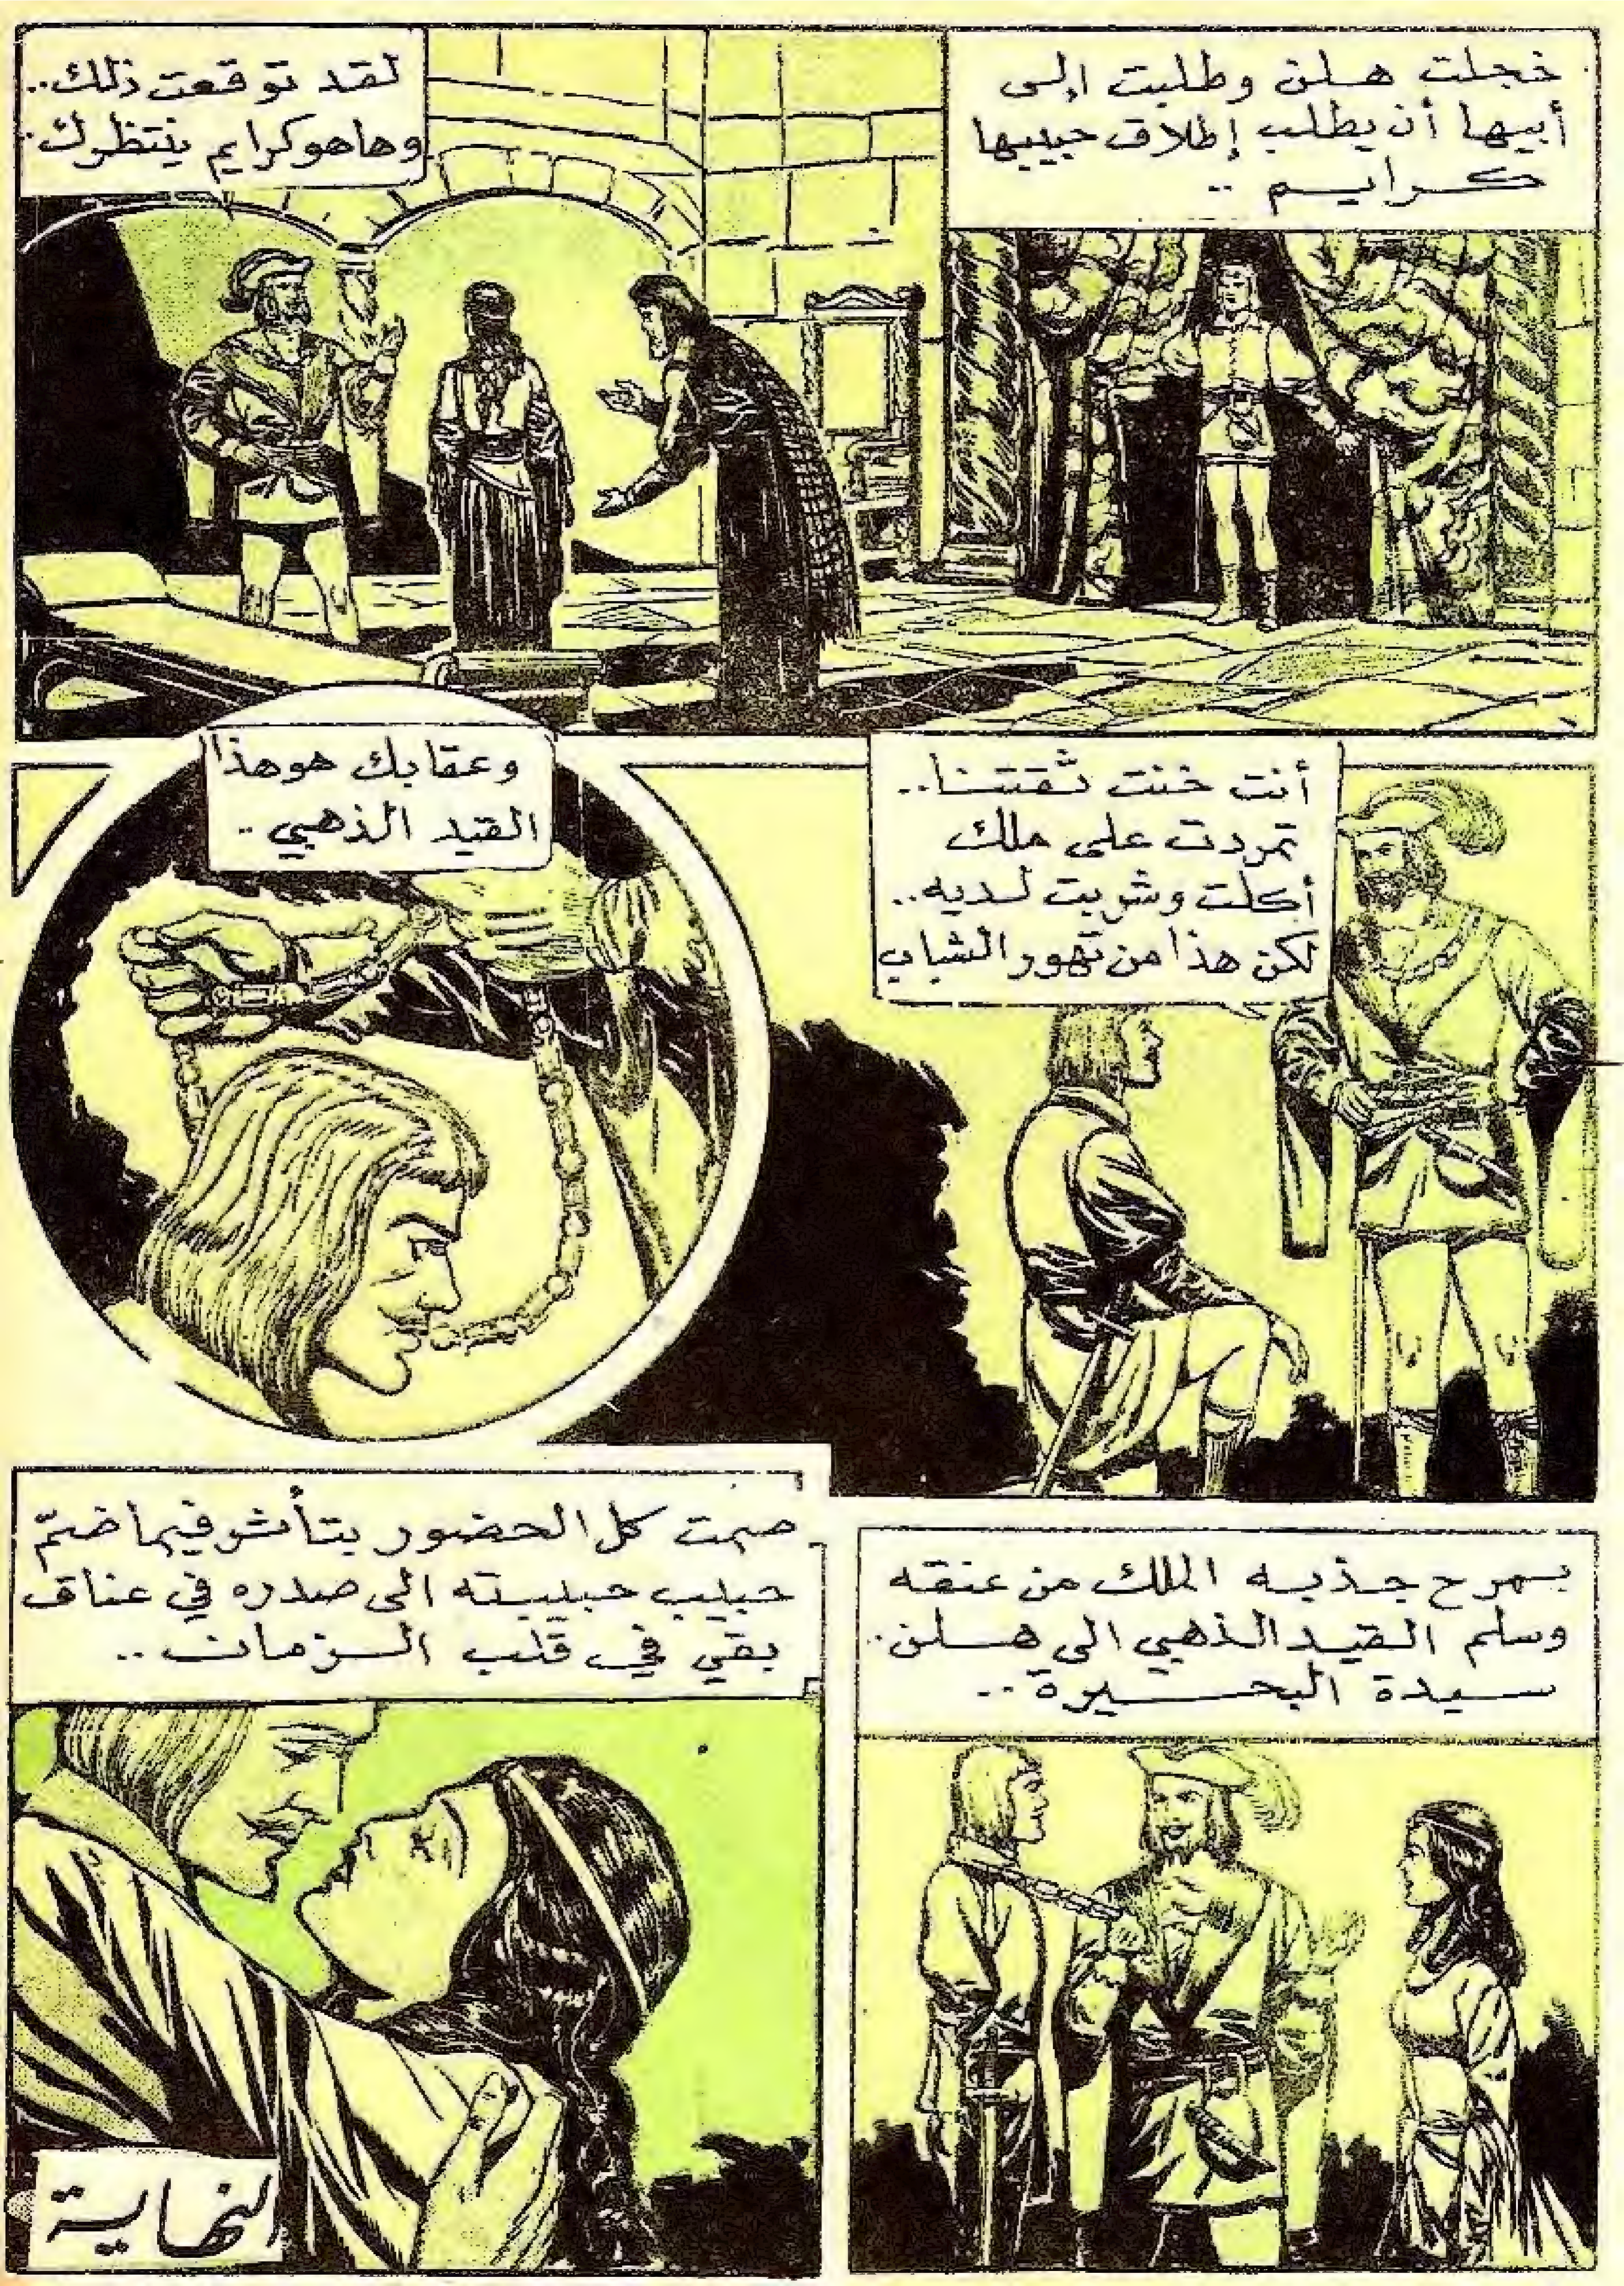 خجلت هلن وطلبت إلى
أبيها أن يطلب إطلاق حبيبها
كرايم ..
لقد توقعت ذلك..
وها هو كرايم ينتظرك..
أنت خنت ثقتنا..
تمردت على ملك
أكلت وشربت لديه..
لكن هذا من تهور الشباب
وعقابك هو هذا
القيد الذهبي ..
بمرح جذبه الملك من عنقه
وسلم القيد الذهبي الى هلن.
سيدة البحيرة ..
صمت كل الحضور بتأثر فيما ضمّ
حبيب حبيبته الى صدره في عناق
بقي في قلب الزمان ..
النهاية